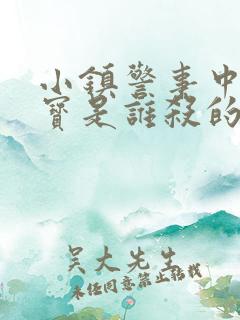 小鎮警事中
寶是誰殺的
吴大先生
未经同意禁止转载